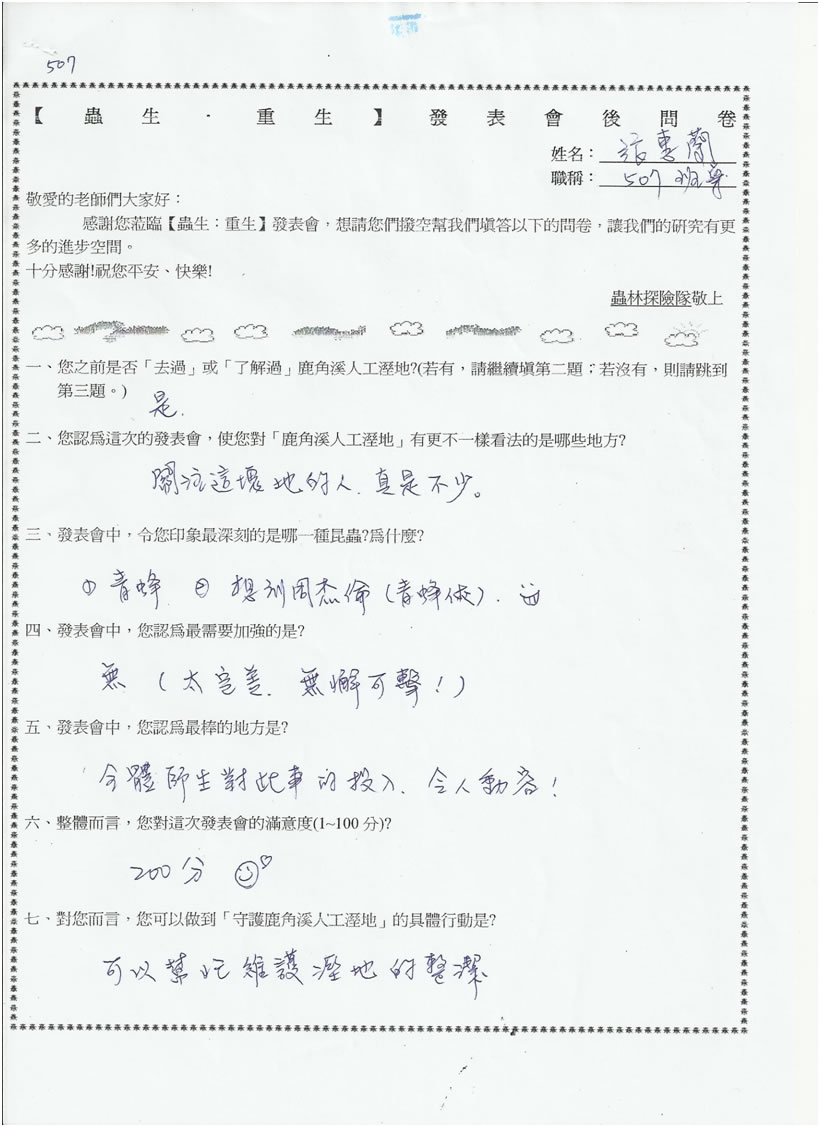 507
【蟲生．重生】發表會後問卷
姓名：張惠蘭
職稱：507 班導
敬愛的老師們大家好：
感謝您蒞臨【蟲生：重生】發表會，想請您們撥空幫我們填答以下的問卷，讓我們的研究有更
多的進步空間。
十分感謝!祝您平安、快樂!
蟲林探險隊敬上
一、您之前是否「去過」或「了解過」鹿角溪人工溼地?(若有，請繼續填第二題；若沒有，則請跳到
第三題。)
是.
二、您認為這次的發表會，使您對「鹿角溪人工溼地」有更不一樣看法的是哪些地方?
關注這塊地的人.真是不少。
三、發表會中，令您印象最深刻的是哪一種昆蟲?為什麼?
① 青蜂 ② 想到周杰倫(青蜂俠).
四、發表會中，您認為最需要加強的是?
無(太完善.無懈可擊!)
五、發表會中，您認為最棒的地方是?
全體師生對此事的投入.令人動容!
六、整體而言，您對這次發表會的滿意度(1~100 分)?
200分
七、對您而言，您可以做到「守護鹿角溪人工溼地」的具體行動是?
可以幫忙維護溼地的整潔